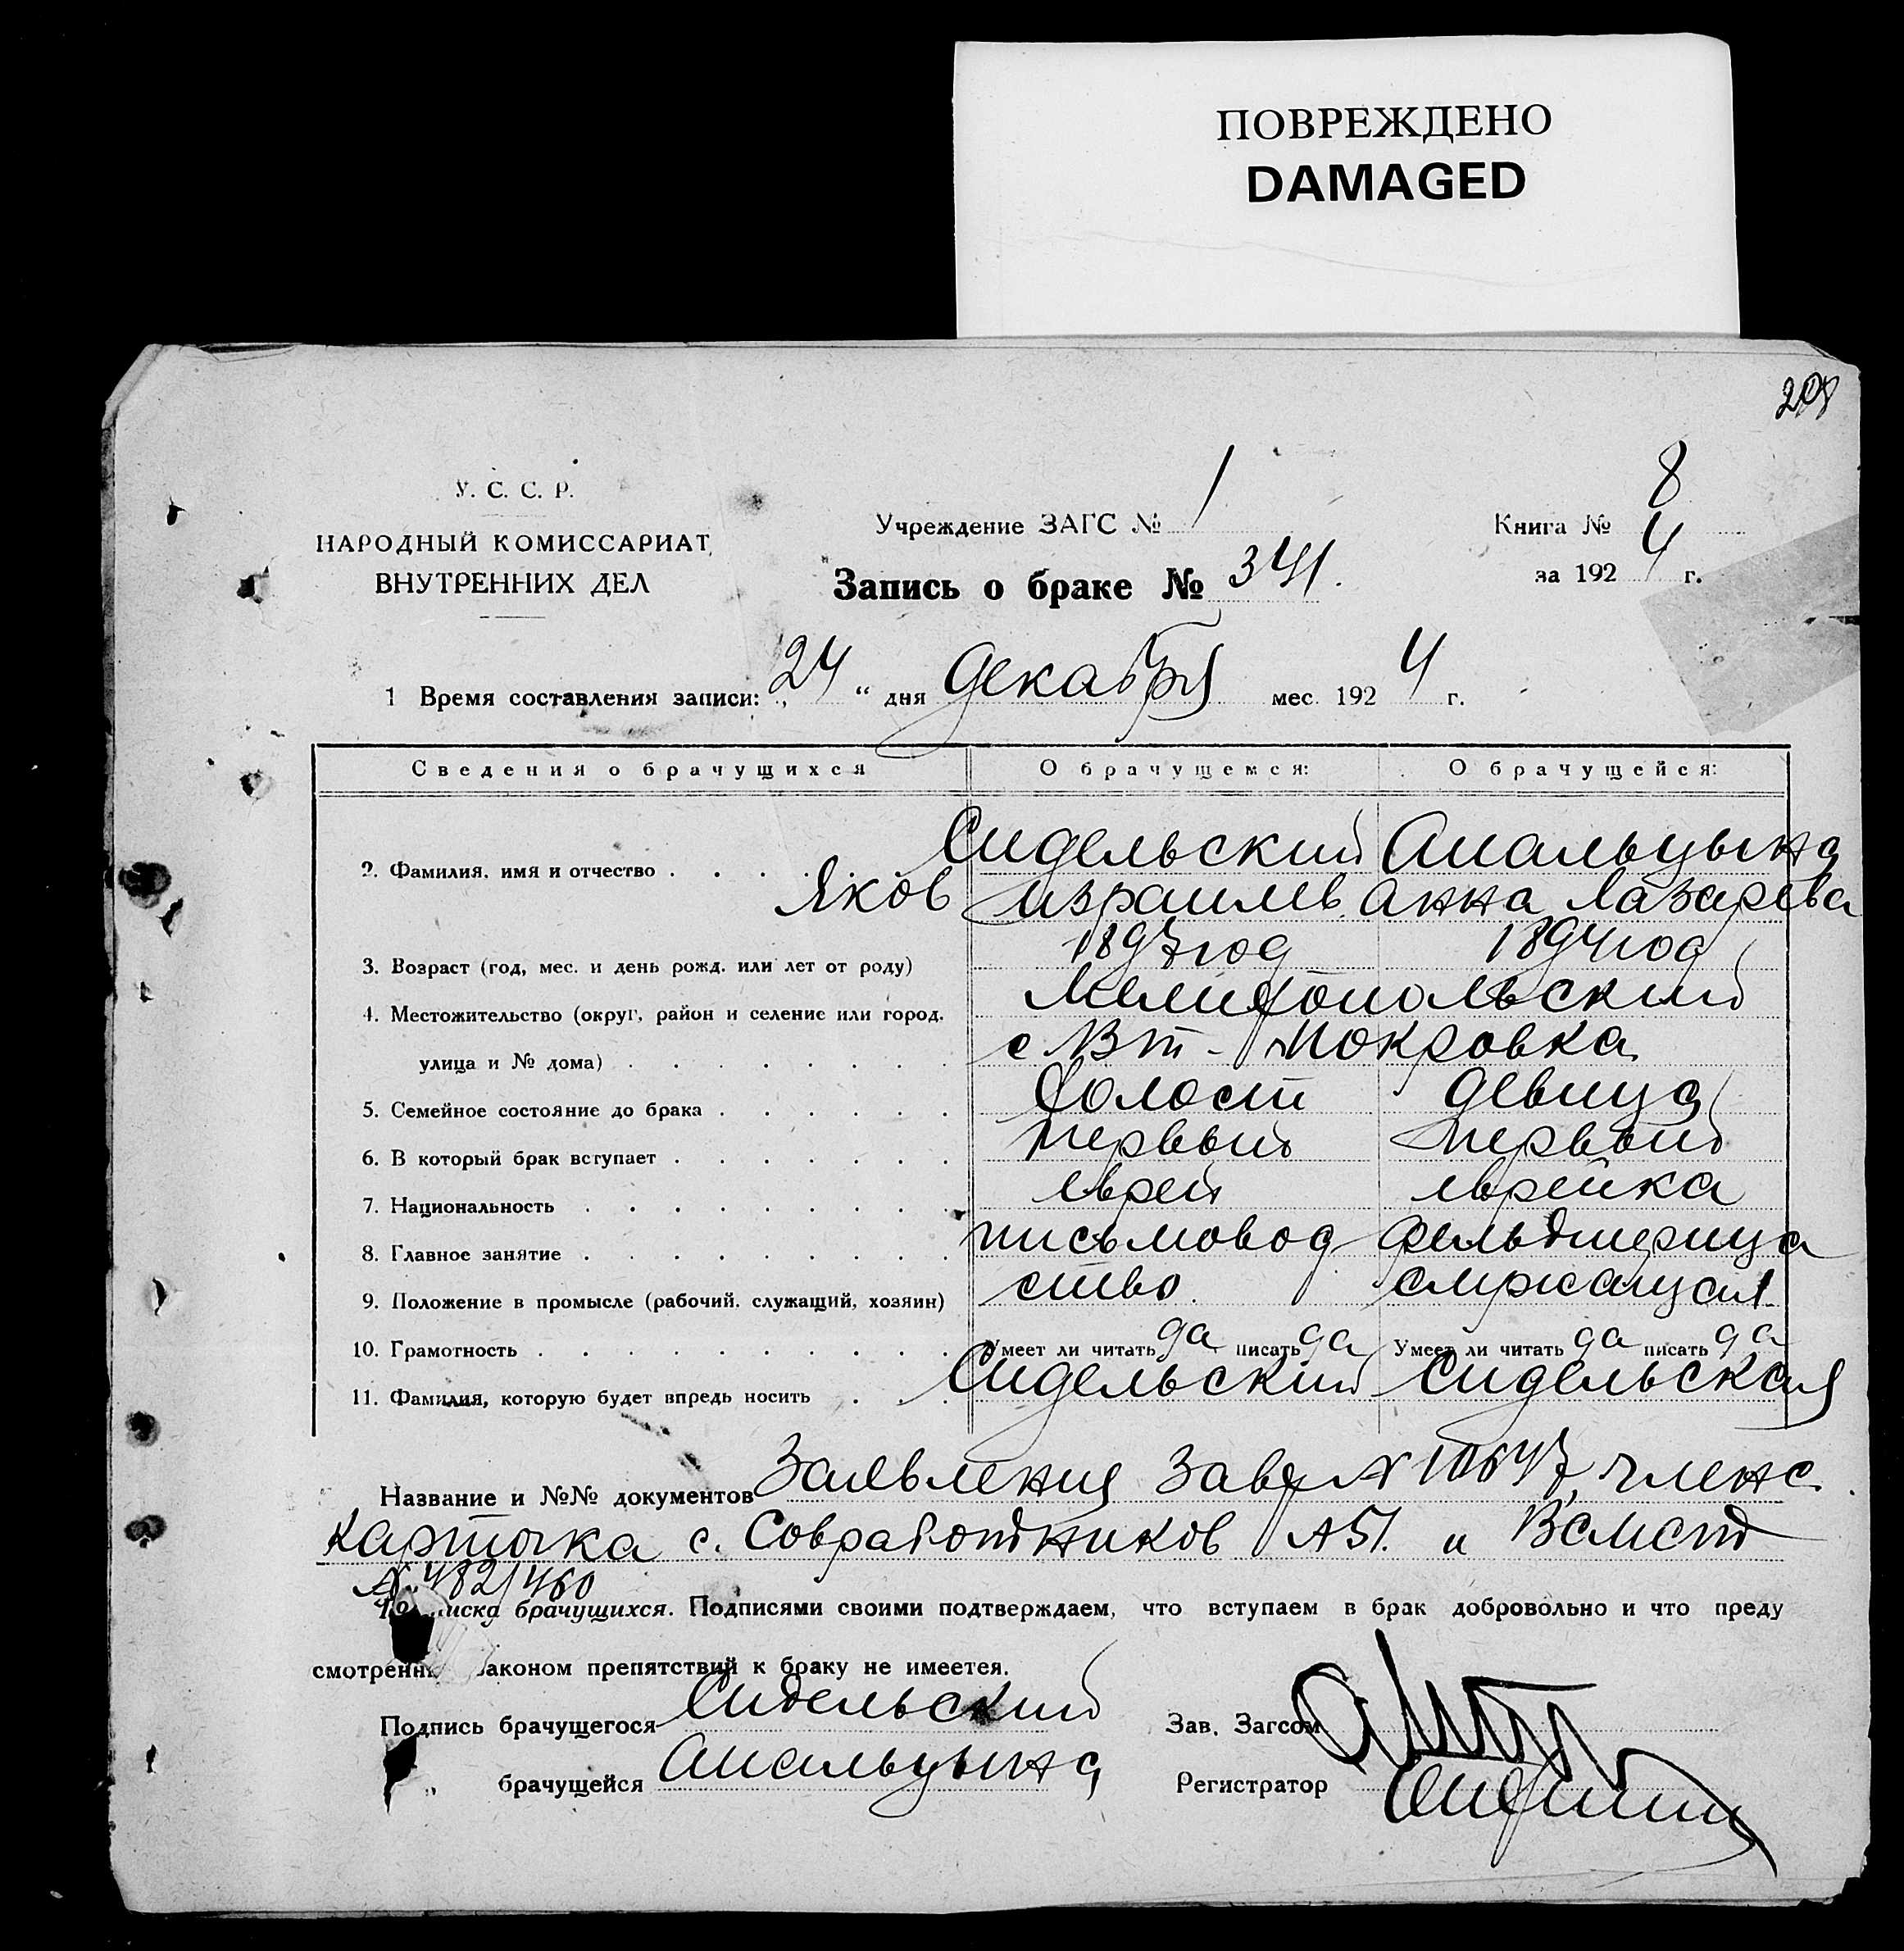 ПОВРЕЖДЕНО
DAMAGED
У. С. С. Р.
НАРОДНЫЙ КОМИССАРИАТ
ВНУТРЕННИХ ДЕЛ
Учреждение ЗАГС № 1
Книга № 8
Запись о браке № 341.
за 1924 г.
1 Время составления записи: „24 “ дня декабря мес. 1924 г.
Сведения о брачущихся О брачущемся: О брачущейся:
2. Фамилия, имя и отчество Сидельский
Яков Израилев. Анна Лазарева
3. Возраст (год, мес. и день рожд. или лет от роду) 1897 год 1894 год
4. Местожительство (округ, район и селение или город, Мелитопольский
улица и № дома) с Вт-Покровка
5. Семейное состояние до брака Холост девица
6. В который брак вступает первый первый
7. Национальность еврей еврейка
8. Главное занятие письмовод фельдшерица
9. Положение в промысле (рабочий, служащий, хозяин) ство. служащая
10. Грамотность Умеет ли читать да писать да Умеет ли читать да писать да
11. Фамилия, которую будет впредь носить Сидельский Сидельская
Название и №№ документов Заявления членс.
карточка с. Совработников № 51. и
№ 482/460
брачущихся. Подписями своими подтверждаем, что вступаем в брак добровольно и что преду
смотренн законом препятствий к браку не имеется.
Подпись брачущегося Сидельский Зав. Загсом
„ брачущейся Регистратор